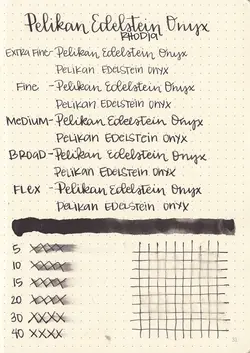 Pelikan Edelstein Onyx
RHODIA
EXTRA FINE - Pelikan Edelstein Onyx
PELIKAN EDELSTEIN ONYX
FINE - Pelikan Edelstein Onyx
PELIKAN EDELSTEIN ONYX
MEDIUM - Pelikan Edelstein Onyx
PELIKAN EDELSTEIN ONYX
BROAD - Pelikan Edelstein Onyx
PELIKAN EDELSTEIN ONYX
FLEX - Pelikan Edelstein Onyx
PELIKAN EDELSTEIN ONYX
5 XXXX
10 XXXX
15 XXXX
20 XXXX
30 XXXX
40 XXXX